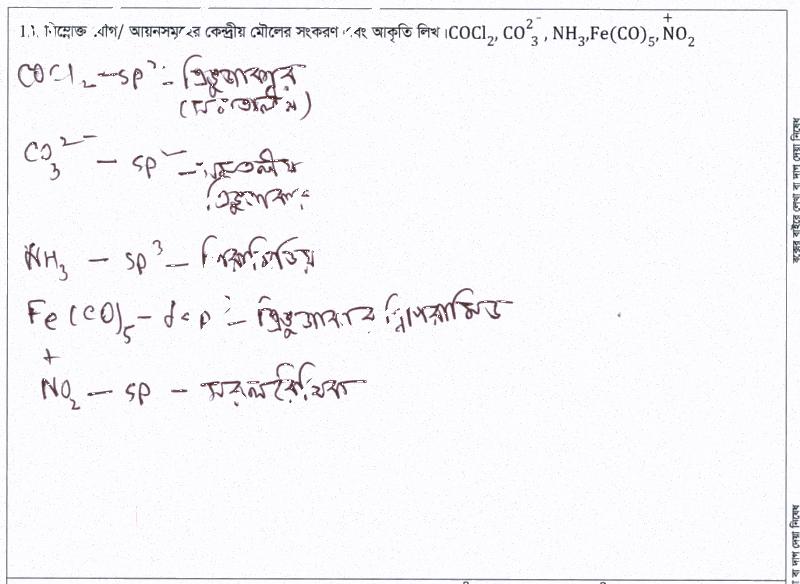 নিম্নোক্ত যৌগ/ আয়নসমূহের কেন্দ্রীয় মৌলের সংকরণ এবং আকৃতি লিখ।COCl₂, CO₃²⁻, NH₃,Fe(CO)₅,N⁺O₂
COCl₂ – sp² – ত্রিভুজাকার
CO₃²⁻ – sp² – সমতলীয়
ত্রিভুজাকার
NH₃ – sp³ –
Fe(CO)₅ – dsp³ – ত্রিভুজাকার
N⁺O₂ – sp – সরলরৈখিক
বক্সের বাইরে লেখা বা দাগ দেয়া নিষেধ
বা দাগ দেয়া নিষেধ